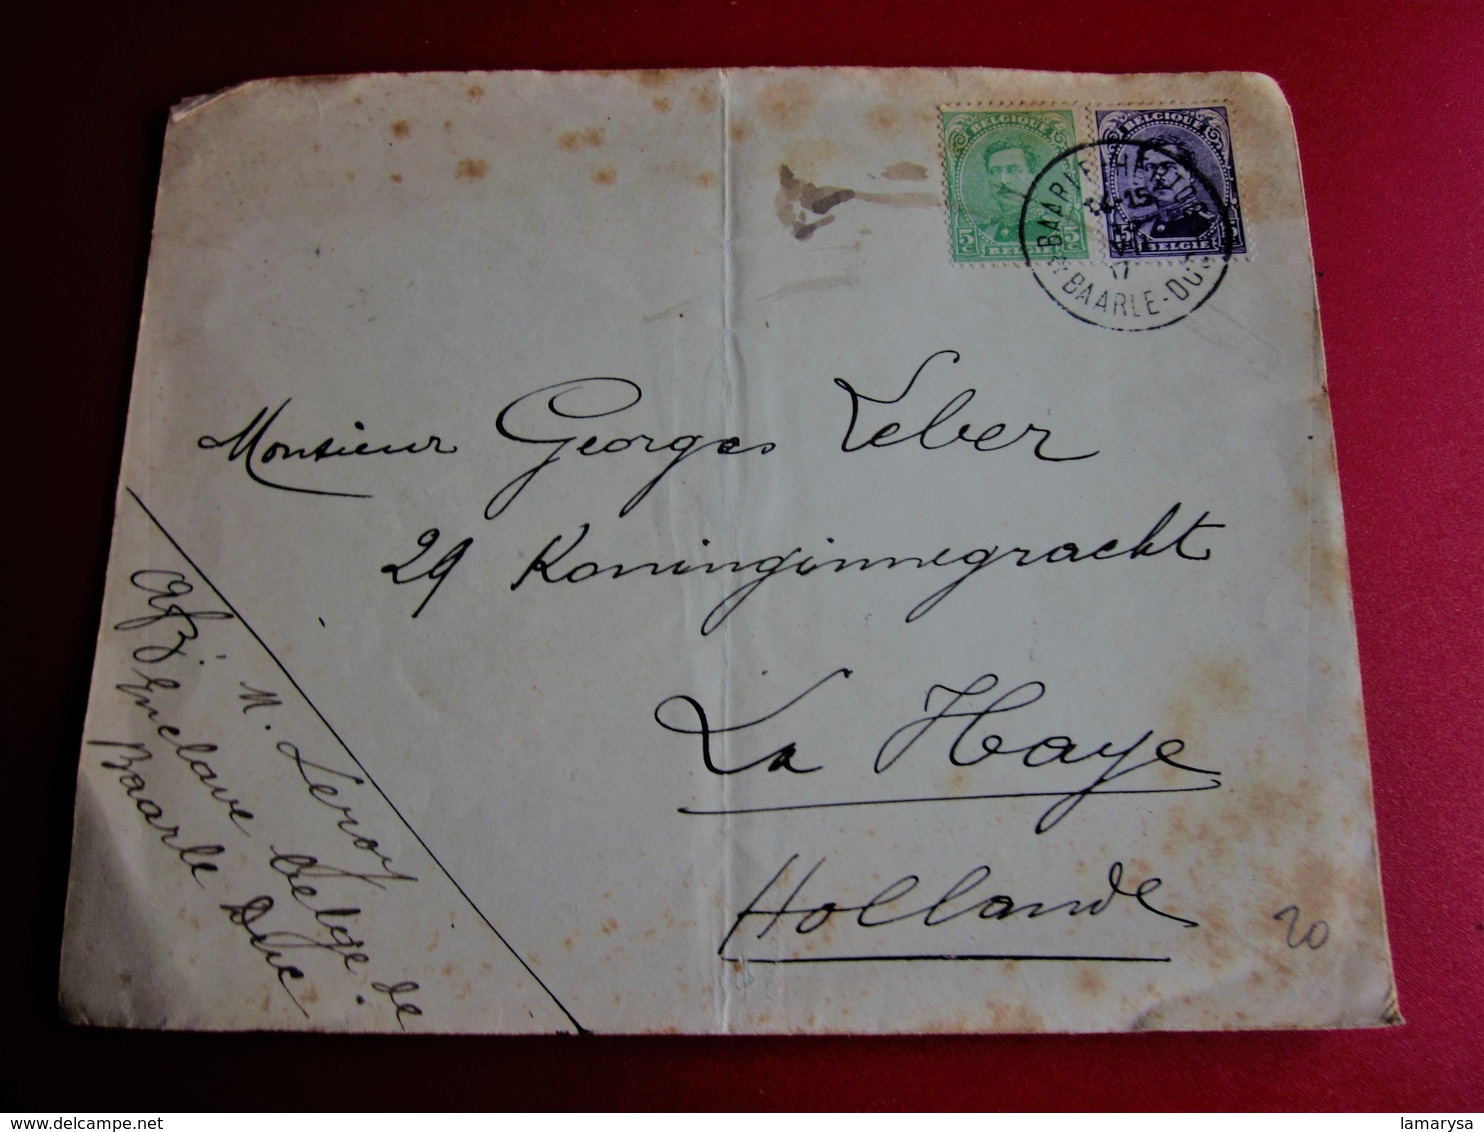 BELGIQUE
5c 5c
BELGIË
BELGIQUE
15
BELGIË
BAARLE-HERTOG
14-15
17
BAARLE-DUC
Monsieur Georges Leber
29 Koninginnegracht
La Haye
Hollande
M. Leroy
Enclave belge de
Baarle Duc
20
delcampe.net
lamarysa